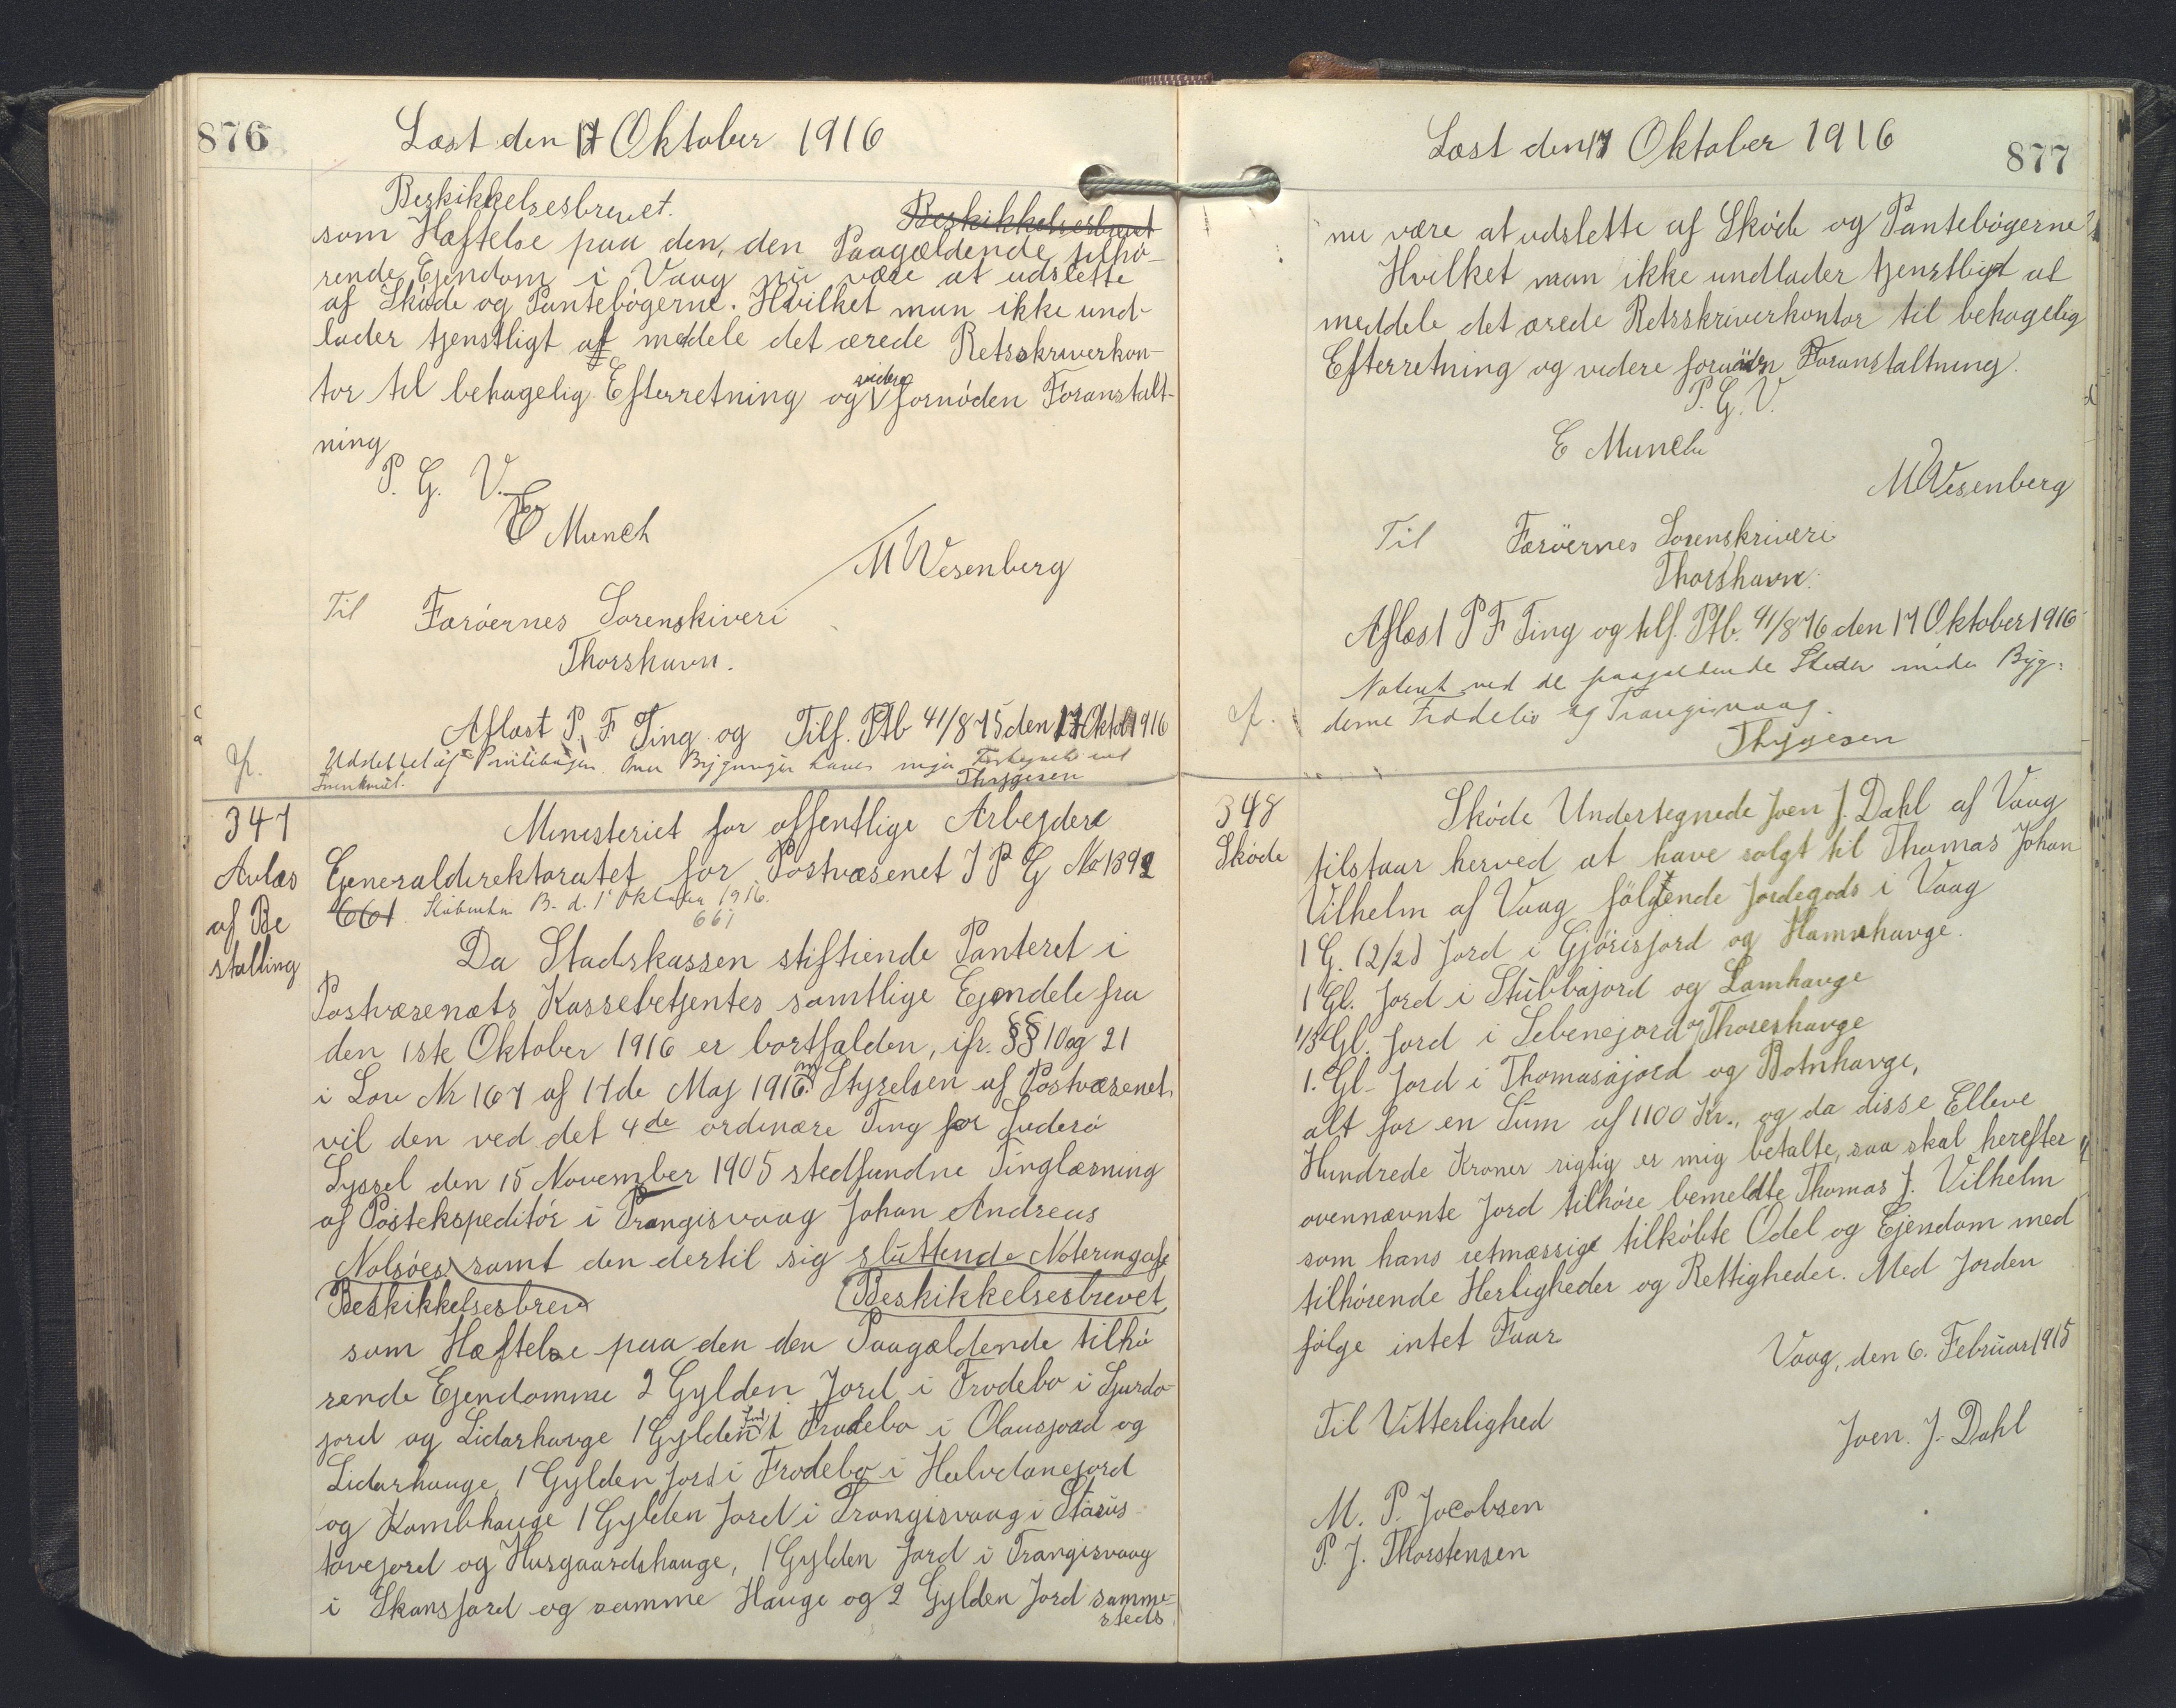 876
Læst den 17 Oktober 1916
Beskikkelsesbrevet. Beskikkelsesbrevet
som Hæftelse paa den, den Paagældende tilhø-
rende Ejendom i Vaag nu være at udslette
af Skøde og Pantebøgerne. Hvilket man ikke und-
lader tjenstligt at meddele det ærede Retsskriverkon-
tor til behagelig Efterretning og videre fornøden Foranstalt-
ning
P. G. V.
E Munch
M Wesenberg
Til Færøernes Sorenskiveri
Thorshavn.
Aflæst P. F. Ting og Tilf. Ptb 41/875 den 17 Oktob 1916
Thygesen
347
Avlæs
af Be
stalling
Ministeriet for offentlige Arbejdere
Generaldirektoratet for Postvæsenet J P G No 1892
661. København B. d. 1' Oktober 1916.
661
Da Stadskassen stiftiende Panteret i
Postvæsenets Kassebetjentes samtlige Ejendele fra
den 1ste Oktober 1916 er bortfalden, ifr. §§ 10 og 21
i Lov Nr 167 af 17de Maj 1916 om Styrelsen af Postvæsenet
vil den ved det 4de ordinære Ting for Suderø
Syssel den 15 November 1905 stedfundne Tinglæsning
af Postekspeditør i Trangisvaag Johan Andreas
Nolsøes samt den dertil sig sluttende Notering af
Beskikkelsesbrev Beskikkelsesbrevet
som Hæftelse paa den den Paagældende tilhø
rende Ejendomme 2 Gylden Jord i Frodebo i Sjurdo-
jord og Lidarhauge 1 Gylden Jord i Frodebo i Olausjord og
Lidarhauge, 1 Gylden Jord i Frodebo i Halvdanejord
og Kambhauge 1 Gylden Jord i Trangisvaag i Stasus
tovejord og Husgaardshauge, 1 Gylden Jord i Trangisvaag
i Skansjord og samme Hauge og 2 Gylden Jord samme-
steds
Læst den 17 Oktober 1916
877
nu være at udslette af Skøde og Pantebøgerne
Hvilket man ikke undlader tjenstligt at
meddele det ærede Retsskriverkontor til behagelig
Efterretning og videre fornøden Foranstaltning.
P. G. V.
E Munch
M Wesenberg
Til Færöernes Sorenskriveri
Thorshavn.
Aflæst P F Ting og tilf. Ptb. 41/876 den 17 Oktober 1916
Noteret ved de paagældende Steder under Byg-
derne Frodebø og Trangisvaag.
Thygesen
348
Skøde
Skøde Undertegnede Joen J. Dahl af Vaag
tilstaar herved at have solgt til Thomas Johan
Vilhelm af Vaag følgende Jordegods i Vaag
1 G. (2/2) Jord i Gjörisjord og Hamrhauge.
1 Gl. Jord i Stubbajord og Lamhauge
1/3 Gl. Jord i Lebenejord og Thoreshauge
1. Gl- Jord i Thomasajord og Botnhauge,
alt for en Sum af 1100 Kr., og da disse Elleve
Hundrede Kroner rigtig er mig betalte, saa skal herefter
ovennævnte Jord tilhøre bemeldte Thomas J. Vilhelm
som hans retmæssige tilkøbte Odel og Ejendom med
tilhørende Herligheder og Rettigheder. Med Jorden
følge intet Faar
Vaag, den 6. Februar 1915
Til Vitterlighed
Joen. J. Dahl
M. P. Jacobsen
P. J. Thorstensen